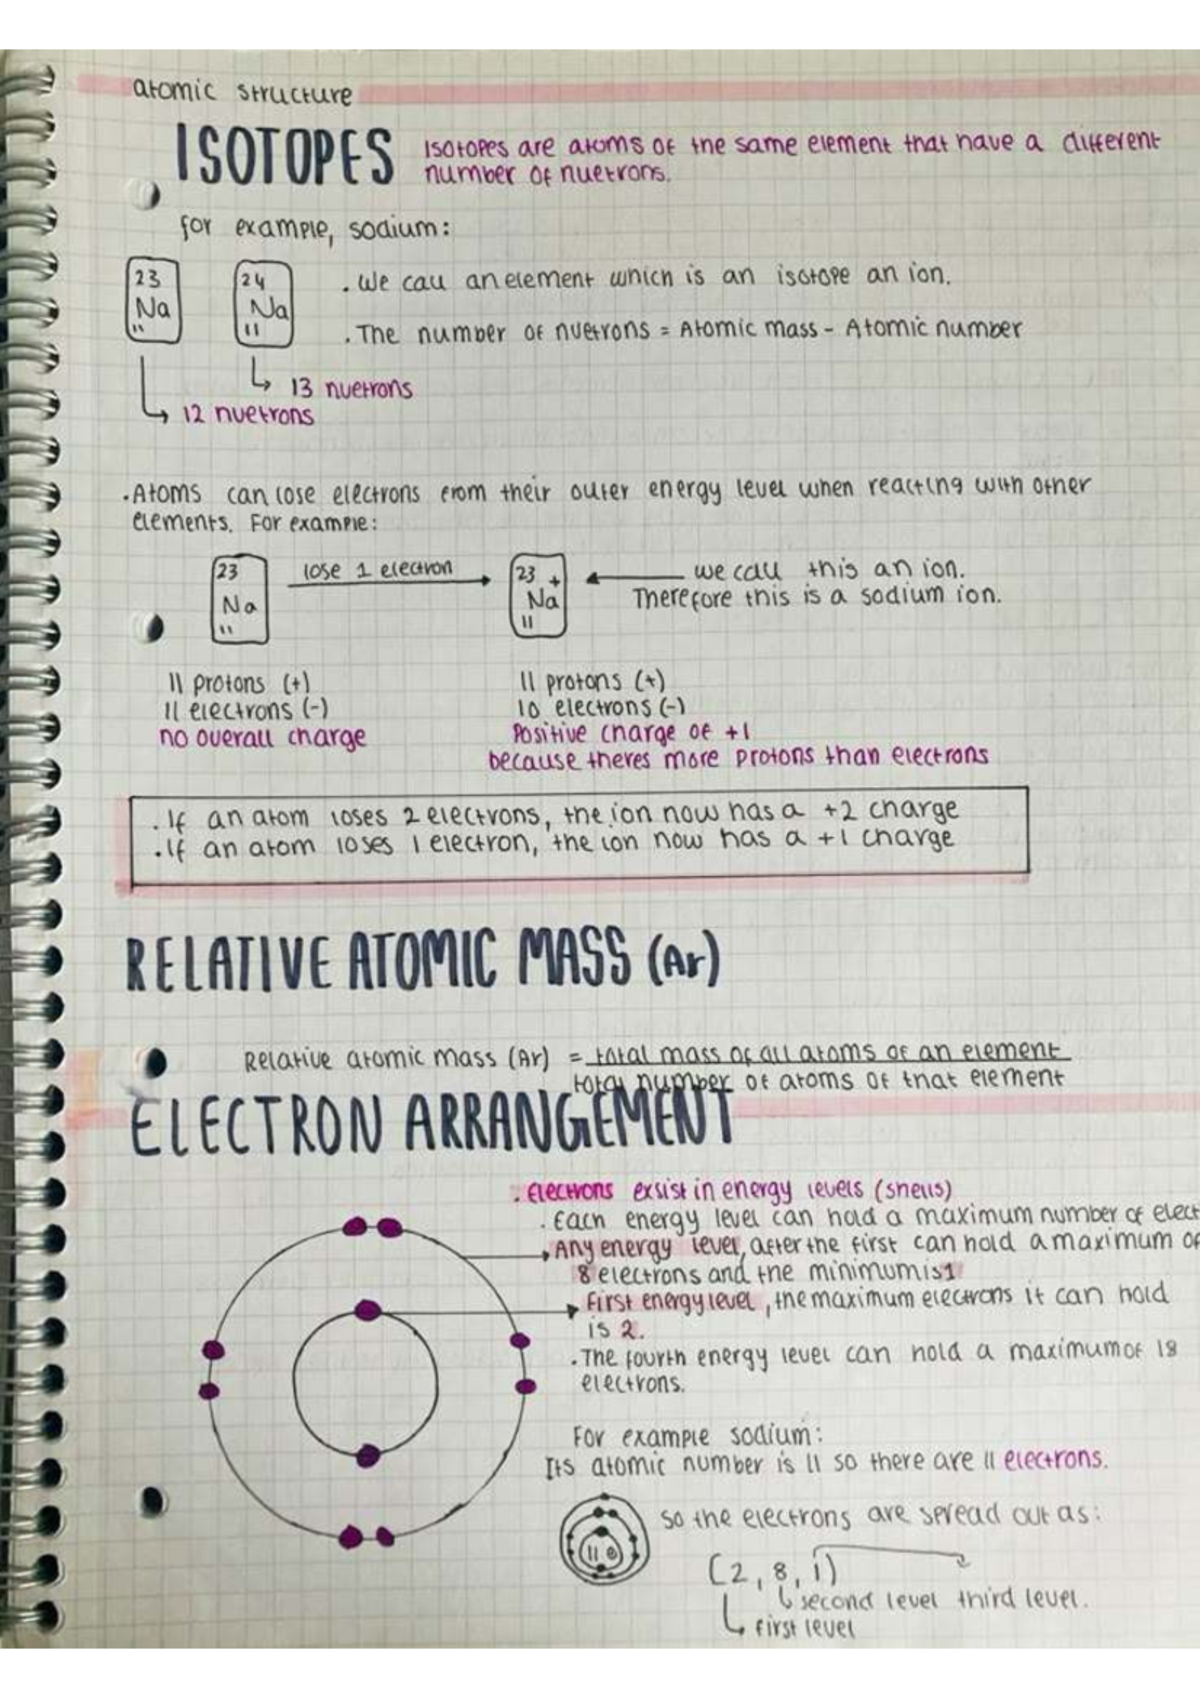 atomic structure
ISOTOPES
Isotopes are atoms of the same element that have a different
number of nuetrons.
for example, sodium:
23
Na
11
24
Na
11
. We call an element which is an isotope an ion.
. The number of nuetrons = Atomic mass - Atomic number
13 nuetrons
12 nuetrons
. Atoms can lose electrons from their outer energy level when reacting with other
elements. For example:
23
Na
11
lose 1 electron
23 +
Na
11
we call this an ion.
Therefore this is a sodium ion.
11 protons (+)
11 electrons (-)
no overall charge
11 protons (+)
10 electrons (-)
Positive charge of +1
because theres more protons than electrons
. If an atom loses 2 electrons, the ion now has a +2 charge
. If an atom loses 1 electron, the ion now has a +1 charge
RELATIVE ATOMIC MASS (Ar)
Relative atomic mass (Ar) = total mass of all atoms of an element
total number of atoms of that element
ELECTRON ARRANGEMENT
. Electrons exsist in energy levels (shells)
. Each energy level can hold a maximum number of elect
Any energy level, after the first can hold a maximum of
8 electrons and the minimum is 1
First energy level, the maximum electrons it can hold
is 2.
. The fourth energy level can hold a maximum of 18
electrons.
For example sodium:
Its atomic number is 11 so there are 11 electrons.
11 e
so the electrons are spread out as:
(2, 8, 1)
second level third level.
first level